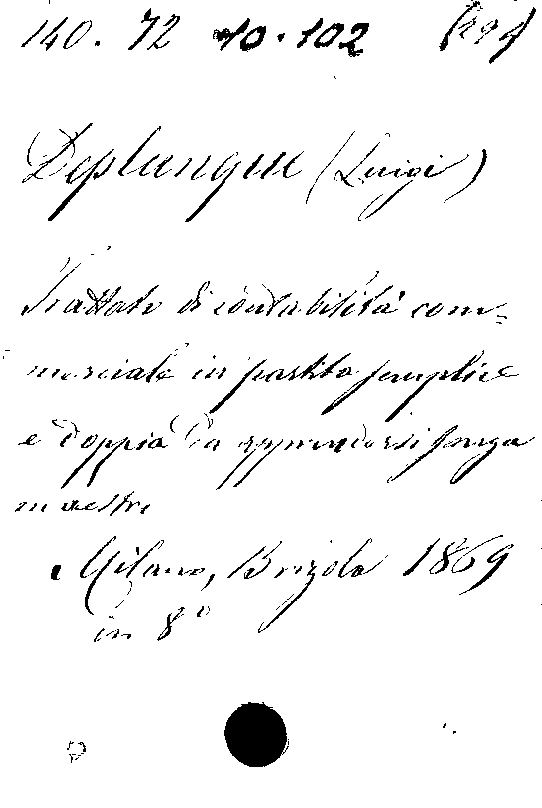 140. 72 10.102
Deplanque (Luigi)
Trattato di contabilità com=
merciale in partita semplice
e doppia da apprendersi senza
maestro
Milano, Brigola 1869
in 8°